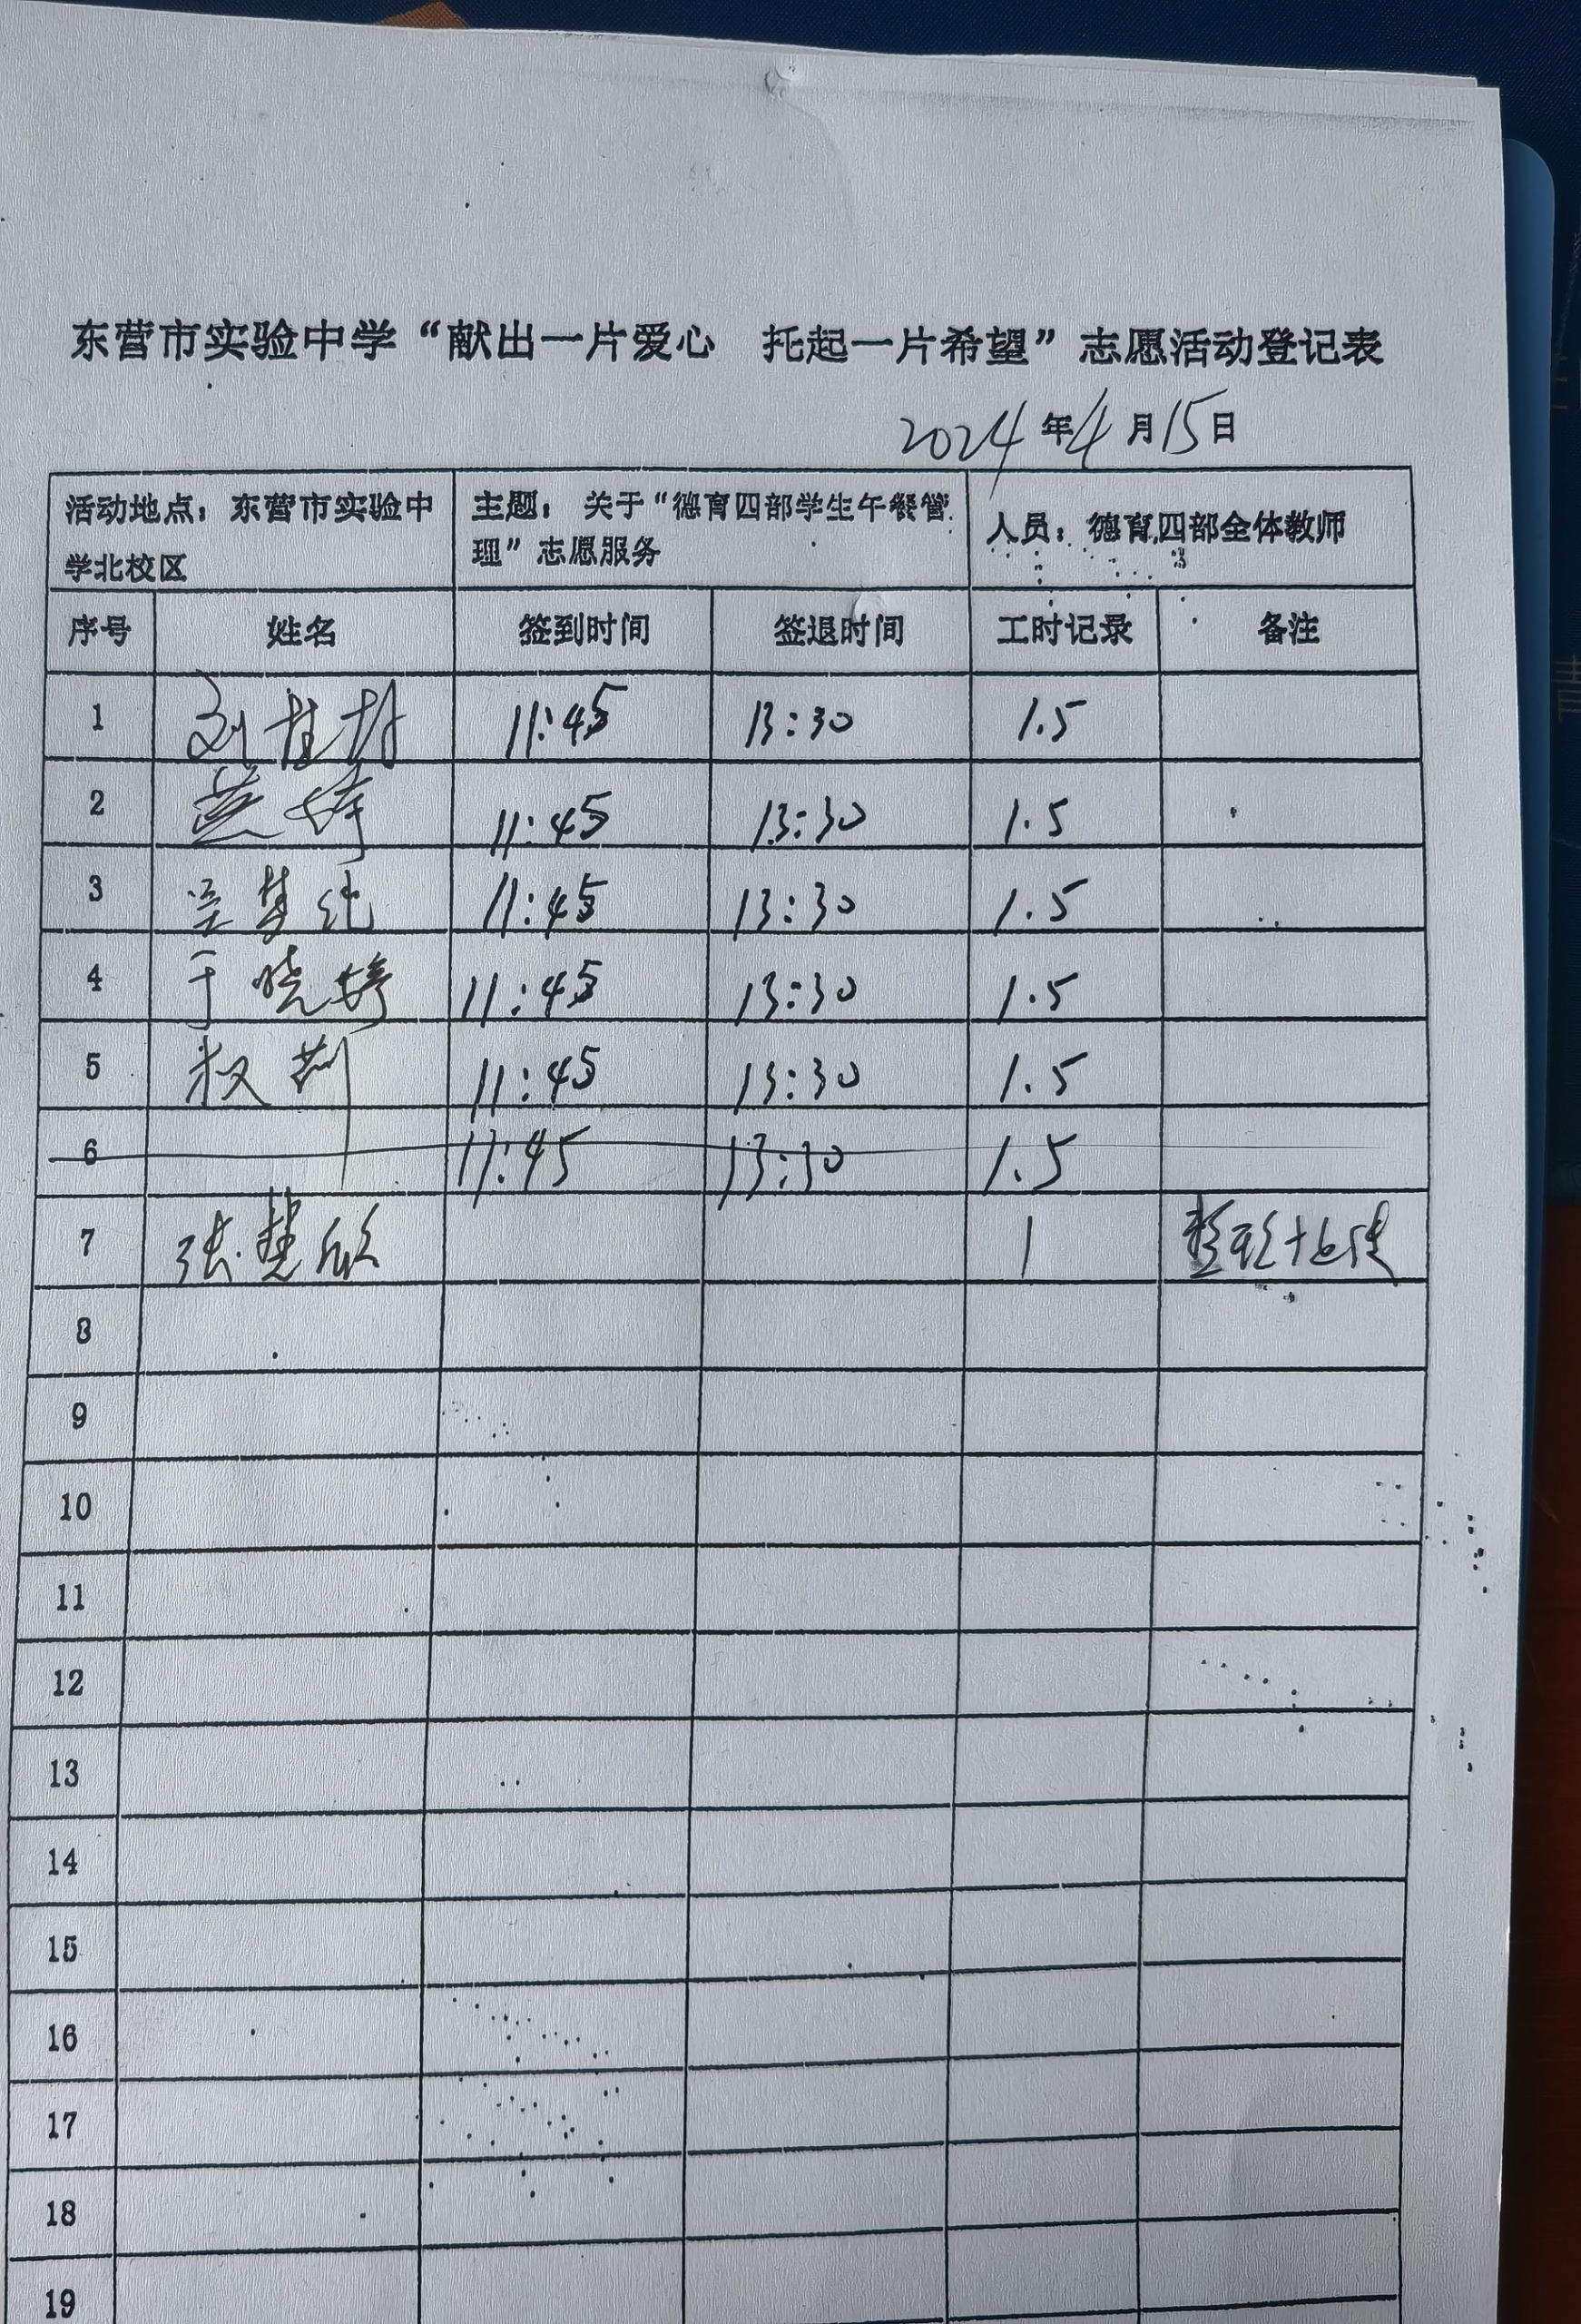 东营市实验中学“献出一片爱心 托起一片希望”志愿活动登记表
2024年4月15日
活动地点：东营市实验中学北校区 主题：关于“德育四部学生午餐管理”志愿服务 人员：德育四部全体教师
序号 姓名 签到时间 签退时间 工时记录 备注
1 刘 11:45 13:30 1.5
2 11:45 13:30 1.5
3 吴梦纯 11:45 13:30 1.5
4 于晓婷 11:45 13:30 1.5
5 权荆 11:45 13:30 1.5
6 11:45 13:30 1.5
7 张楚欣 1
8
9
10
11
12
13
14
15
16
17
18
19